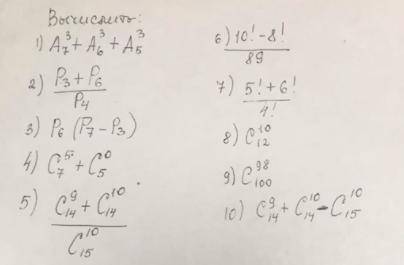 Вычислить:
1) A₇³ + A₆³ + A₅³
2) (P₃ + P₆) / P₄
3) P₆ (P₇ – P₃)
4) C₇⁵ + C₅⁰
5) (C₁₄⁹ + C₁₄¹⁰) / C₁₅¹⁰
6) (10! – 8!) / 89
7) (5! + 6!) / 4!
8) C₁₂¹⁰
9) C₁₀₀⁹⁸
10) C₁₄⁹ + C₁₄¹⁰ – C₁₅¹⁰